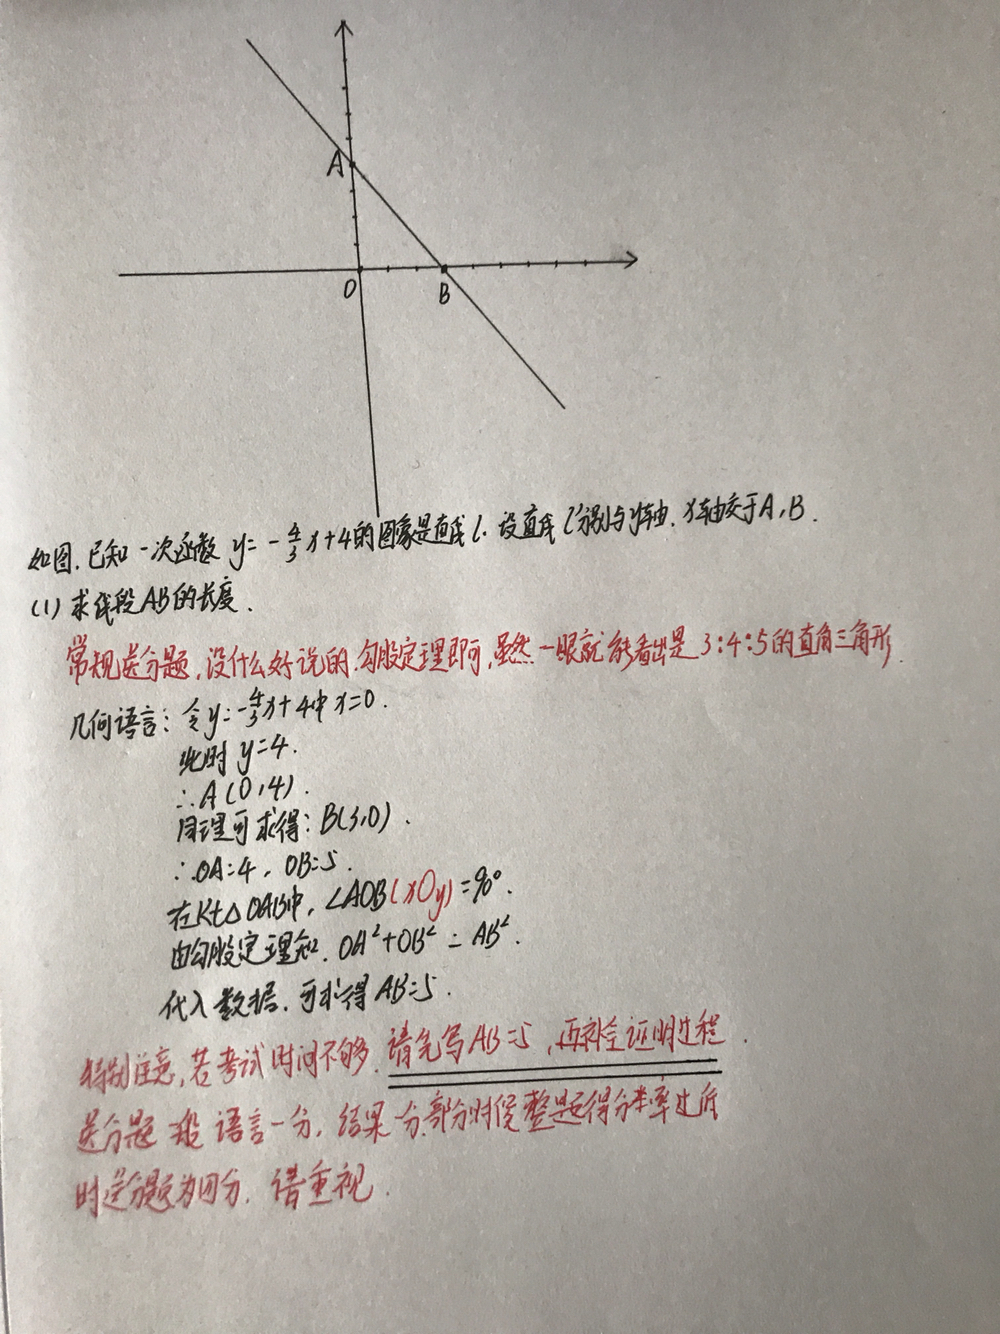 A
O
B
如图,已知一次函数 y=-4/3x+4的图象是直线l.设直线l分别与y轴、x轴交于A,B.
(1)求线段AB的长度.
常规送分题,没什么好说的,勾股定理即可,虽然一眼就能看出是3:4:5的直角三角形.
几何语言:令y=-4/3x+4中x=0.
此时y=4.
∴A(0,4).
同理可求得:B(3,0).
∴OA=4,OB=5.
在Rt△OAB中,∠AOB(xOy)=90°.
由勾股定理知,OA²+OB²=AB².
代入数据,可求得AB=5.
特别注意,若考试时间不够,请先写AB=5,再补全证明过程.
送分题 语言一分,结果一分,部分时候整题得分率过低
时送分题为四分,请重视.